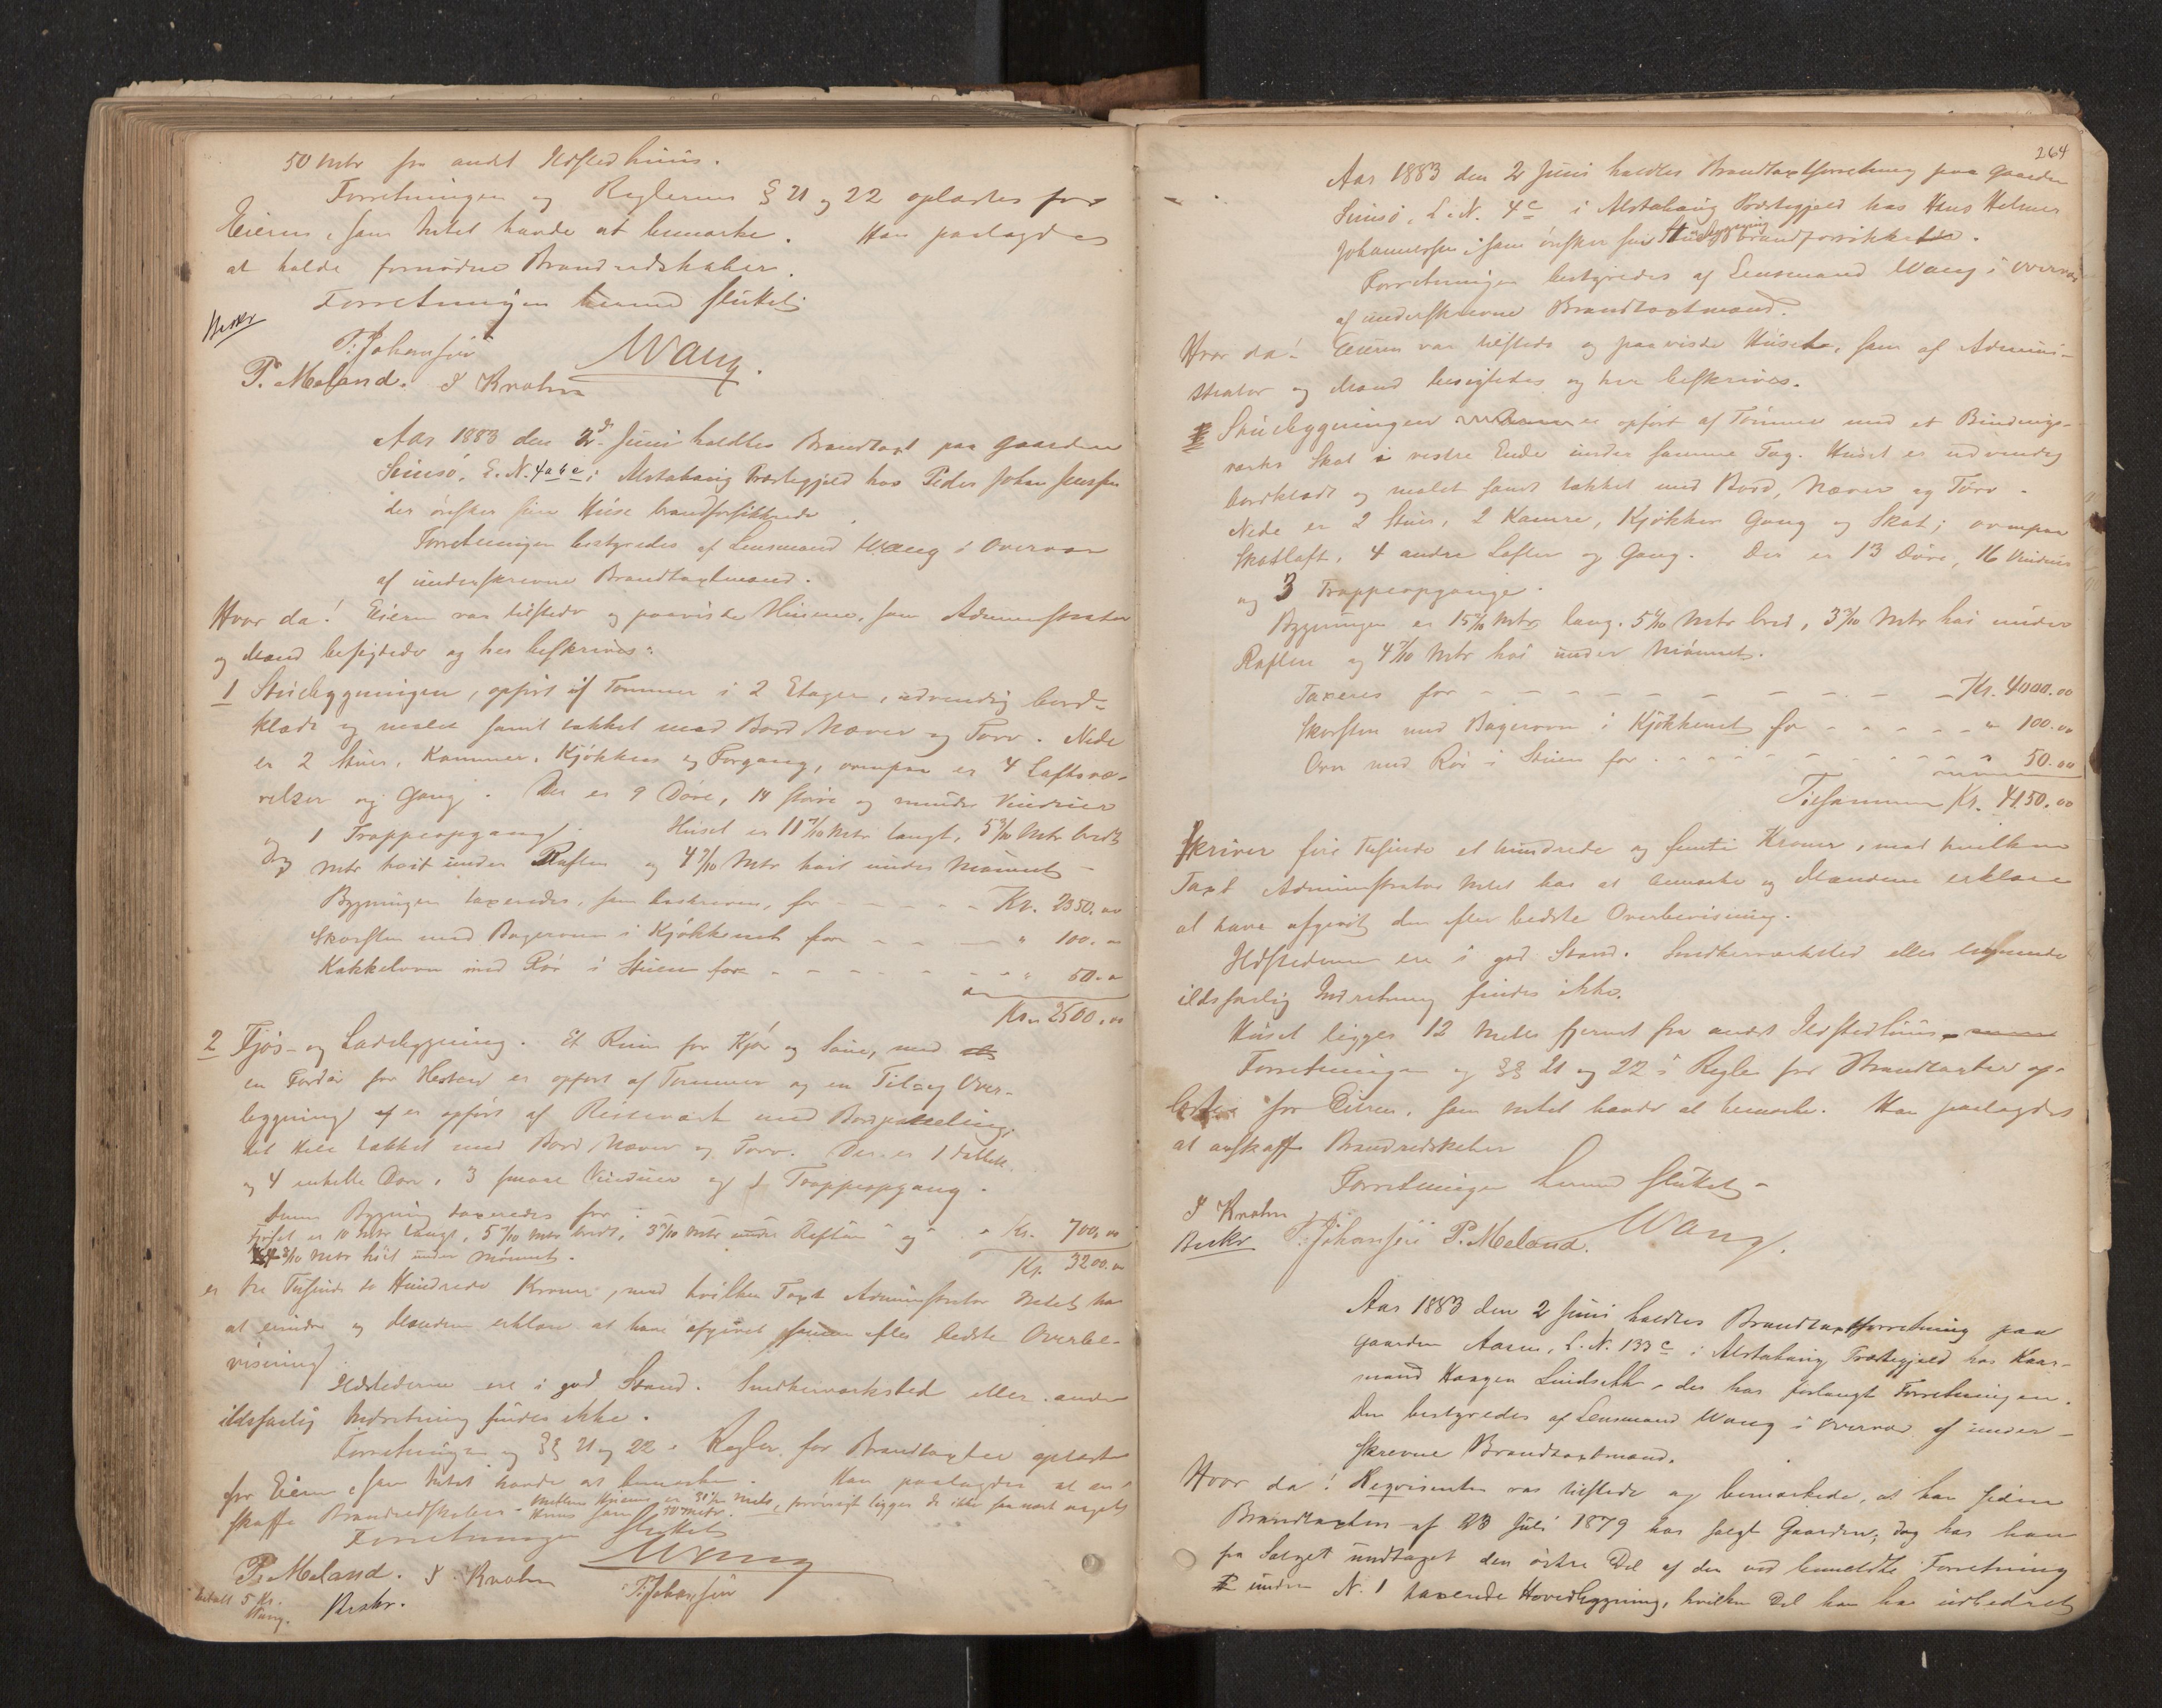 50 Mtr fra andet Ildstedhuus.
Forretningen og Reglernes § 21 og 22 oplæstes for
Eieren, som Intet havde at bemærke. Han paalagdes
at holde fornødne Brandredskaber.
Forretningen hermed sluttet
Beskr
P. Johansen Wang.
P. Meland. J Krohn
Aar 1883 den 2d Juni holdtes Brandtaxt paa Gaarden
L.N. 4 a b c i Alstahaug Præstegjeld hos Peder Johan Jenssen
der ønsker sine Huse brandforsikkrede
Forretningen bestyredes af Lensmand Wang i Overvær
af underskrevne Brandtaxtmænd.
Hvor da! Eieren var tilstede og paaviste Husene, som Administrator
og Mænd besigtede og her beskrives:
1 Stuebygningen, opført af Tømmer i 2 Etager, udvendig bord-
klædt og malet samt tækket med Bord Næver og Torv. Nede
er 2 Stuer, Kammer, Kjøkken og Forgang, ovenpaa er 4 Loftsvæ-
relser og Gang. Der er 9 Døre, 14 større og mindre Vinduer
og 1 Trappeopgang. Huset er 11 7/10 Mtr langt, 5 Mtr bredt
Mtr høit under Raften og 4 9/10 Mtr høit under Mønnet
Bygningen taxeredes, som beskreven, for - - - - Kr. 2350.00
Skorsten med Bagerovn i Kjøkkenet for - - - - " 100.00
Kakkelovn med Rør i Stuen for - - - - - - " 50.00
Kr. 2500.00
2 Fjøs- og Ladebygning. Et Rum for Kjør og Sauer, med
en Fordør for Hesten er opført af Tømmer og en Til og Over-
bygning er opført af Reisværk med Bordpaneling,
det Hele tækket med Bord Næver og Torv. Der er 1 dobbelt
og 4 enkelte Døre, 3 smaae Vinduer og 1 Trappeopgang.
Denne Bygning taxeredes for - - - Kr. 700.00
Fjøset er 10 Mtr langt, 5 7/10 Mtr bredt, 3 Mtr under Raften og
Mtr høit under Mønnet. Kr. 3200.00
er Tre Tusinde to Hundrede Kroner, mod hvilken Taxt Administrator Intet har
at erindre og Mændene erklære at have afgivet samme efter bedste Overbe-
visning.
Ildstederne ere i god Stand. Snedkerværksted eller anden
ildsfarlig Indretning findes ikke.
Forretningen og §§ 21 og 22 i Regler for Brandtaxter oplæstes
for Eieren, som Intet havde at bemærke. Han paalagdes at an-
skaffe Brandredskaber. Mellem Husene er Mtr, forøvrigt ligger de ikke saa nært noget
Huus som 50 Metr.
Forretningen sluttet
P. Meland. J. Krohn Wang
P. Johansen
betalt 5 Kr.
Wang. Beskr.
264
Aar 1883 den 2 Juni holdtes Brandtaxtforretning paa Gaarden
L.N. 4 c i Alstahaug Præstegjeld hos Hans Helmer
Johannessen, som ønsker sin Stuebygning brandforsikkret.
Forretningen bestyredes af Lensmand Wang i Overvær
af underskrevne Brandtaxtmænd.
Hvor da! Eieren var tilstede og paaviste Huset, som af Admini-
strator og Mænd besigtedes og her beskrives.
Stuebygningen er opført af Tømmer med et Bindings-
værks Skot i vestre Ende under samme Tag. Huset er udvendig
bordklædt og malet samt tækket med Bord, Næver og Torv.
Nede er 2 Stuer, 2 Kamre, Kjøkken Gang og Skot; ovenpaa
Skotloft, 4 andre Lofter og Gang. Der er 13 Døre, 16 Vinduer
og 3 Trappeopgange.
Bygningen er 15 Mtr lang, 5 Mtr bred, 3 Mtr høi under
Raften og 4 7/10 Mtr høi under Mønnet.
Taxeres for - - - - - - - - - Kr. 4000.00
Skorsten med Bagerovn i Kjøkkenet for - - - - - " 100.00
Ovn med Rør i Stuen for - - - - - - - - 50.00
Tilsammen Kr. 4150.00
Skriver fire Tusinde et hundrede og femti Kroner, mod hvilken
Taxt Administrator Intet har at bemærke og Mændene erklære
at have afgivet den efter bedste Overbevisning.
Ildstederne ere i god Stand. Snedkerværksted eller lignende
ildsfarlig Indretning findes ikke.
Huset ligger 12 Meter fjernet fra andet Ildstedhuus.
Forretningen og §§ 21 og 22 i Regler for Brandtaxter op-
læstes for Eieren, som Intet havde at bemærke. Han paalagdes
at anskaffe Brandredskaber
Forretningen hermed sluttet.
J Krohn
Beskr P. Johansen P. Meland. Wang.
Aar 1883 den 2 Juni holdtes Brandtaxtforretning paa
Gaarden Aasen, L.N. 133 c i Alstahaug Præstegjeld hos Kaar-
mand Haagen Lindseth, der har forlangt Forretningen.
Den bestyredes af Lensmand Wang i Overvær af under-
skrevne Brandtaxtmænd.
Hvor da! Reqvirenten var tilstede og bemærkede, at han siden
Brandtaxten af 23 Juli 1879 har solgt Gaarden, dog har han
fra Salget undtaget den østre Del af den ved bemeldte Forretning
under N. 1 taxerede Hovedbygning, hvilken Del han har udbedret